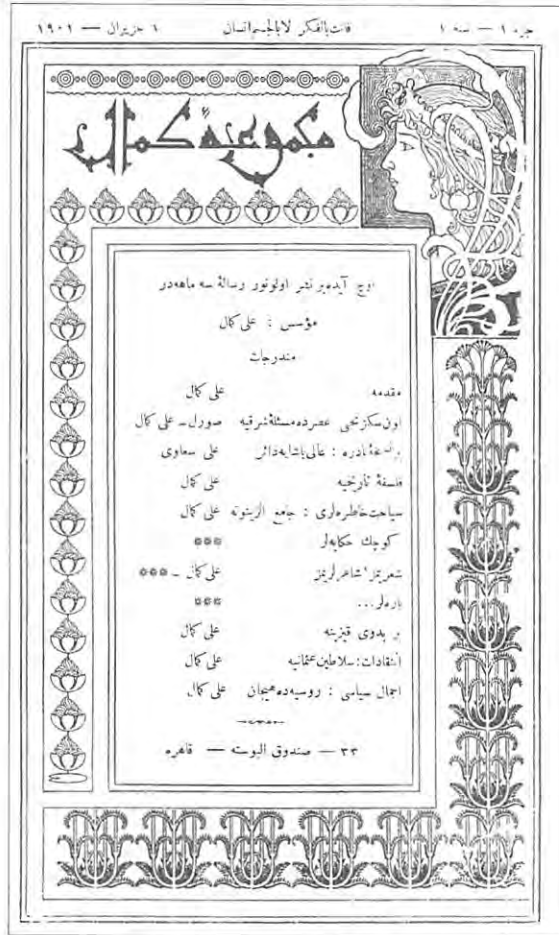 جزء ١ — سنه ١ فأنت بالفكر لا بالجسم انسان ٦ حزيران — ١٩٠١
مجموعهٔ كمال
اوچ آيده بر نشر اولونور رسالهٔ سه ماهه در
مؤسس : على كمال
مندرجات
مقدمه على كمال
اون سكزنجى عصرده مسئلهٔ شرقيه صورل ـ على كمال
بر نسخهٔ نادره : عالى پاشايه دائر على سعاوى
فلسفهٔ تاريخيه على كمال
سياحت خاطره لرى : جامع الزيتونه على كمال
كوچك حكايه لر ***
شعريمز، شاعرلريمز على كمال ـ ***
پاره لر... ***
بر بدوى قيزينه على كمال
انتقادات : سلاطين عثمانيه على كمال
اجمال سياسى : روسيه ده هيجان على كمال
٣٣ — صندوق البوسته — قاهره